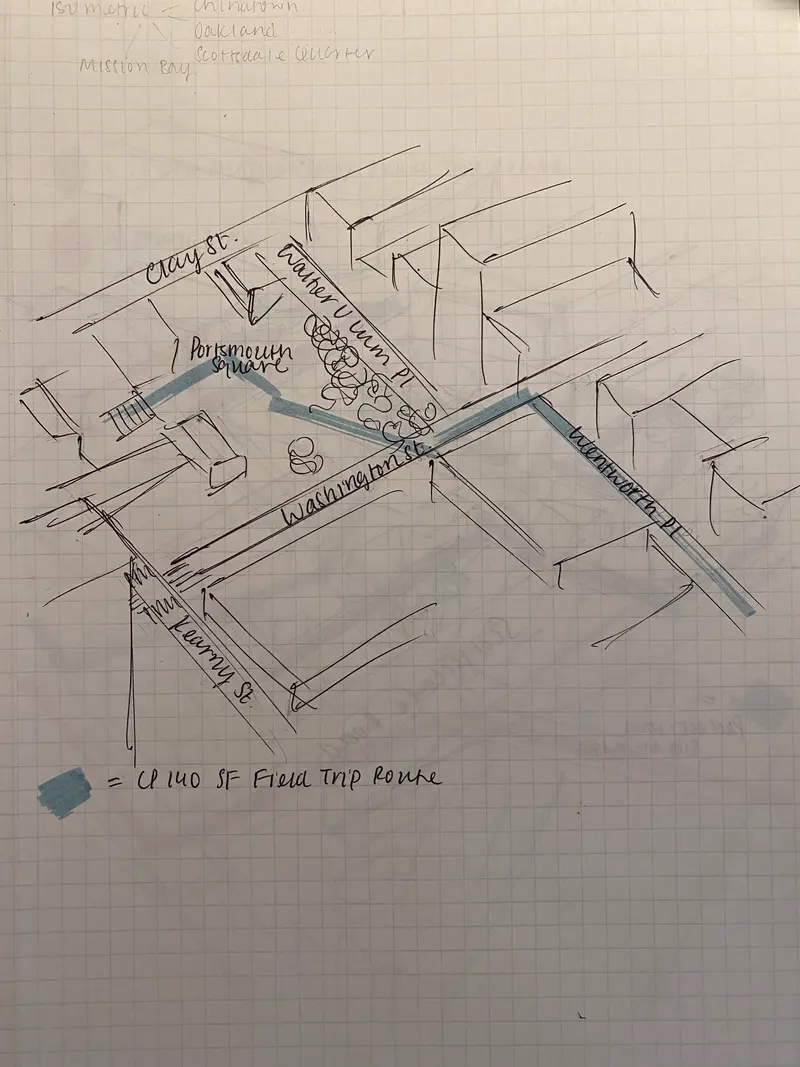 Isometric - Chinatown
Oakland
Scottsdale Quarter
Mission Bay
Clay St.
Walter U Lum Pl
Portsmouth
Square
Washington St.
Wentworth Pl
Kearny St.
= CP 140 SF Field Trip Route